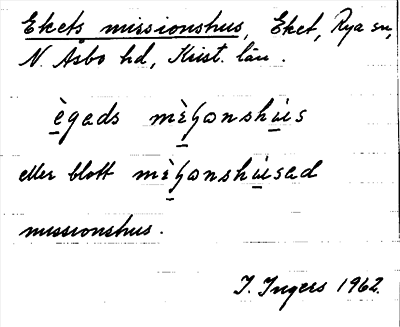 Ekets missionshus, Eket, Rya sn,
N. Åsbo hd, Krist. län.
ègads mèʃɔnshùs
eller blott mèʃɔnshùsad
missionshus.
I. Ingers 1962.